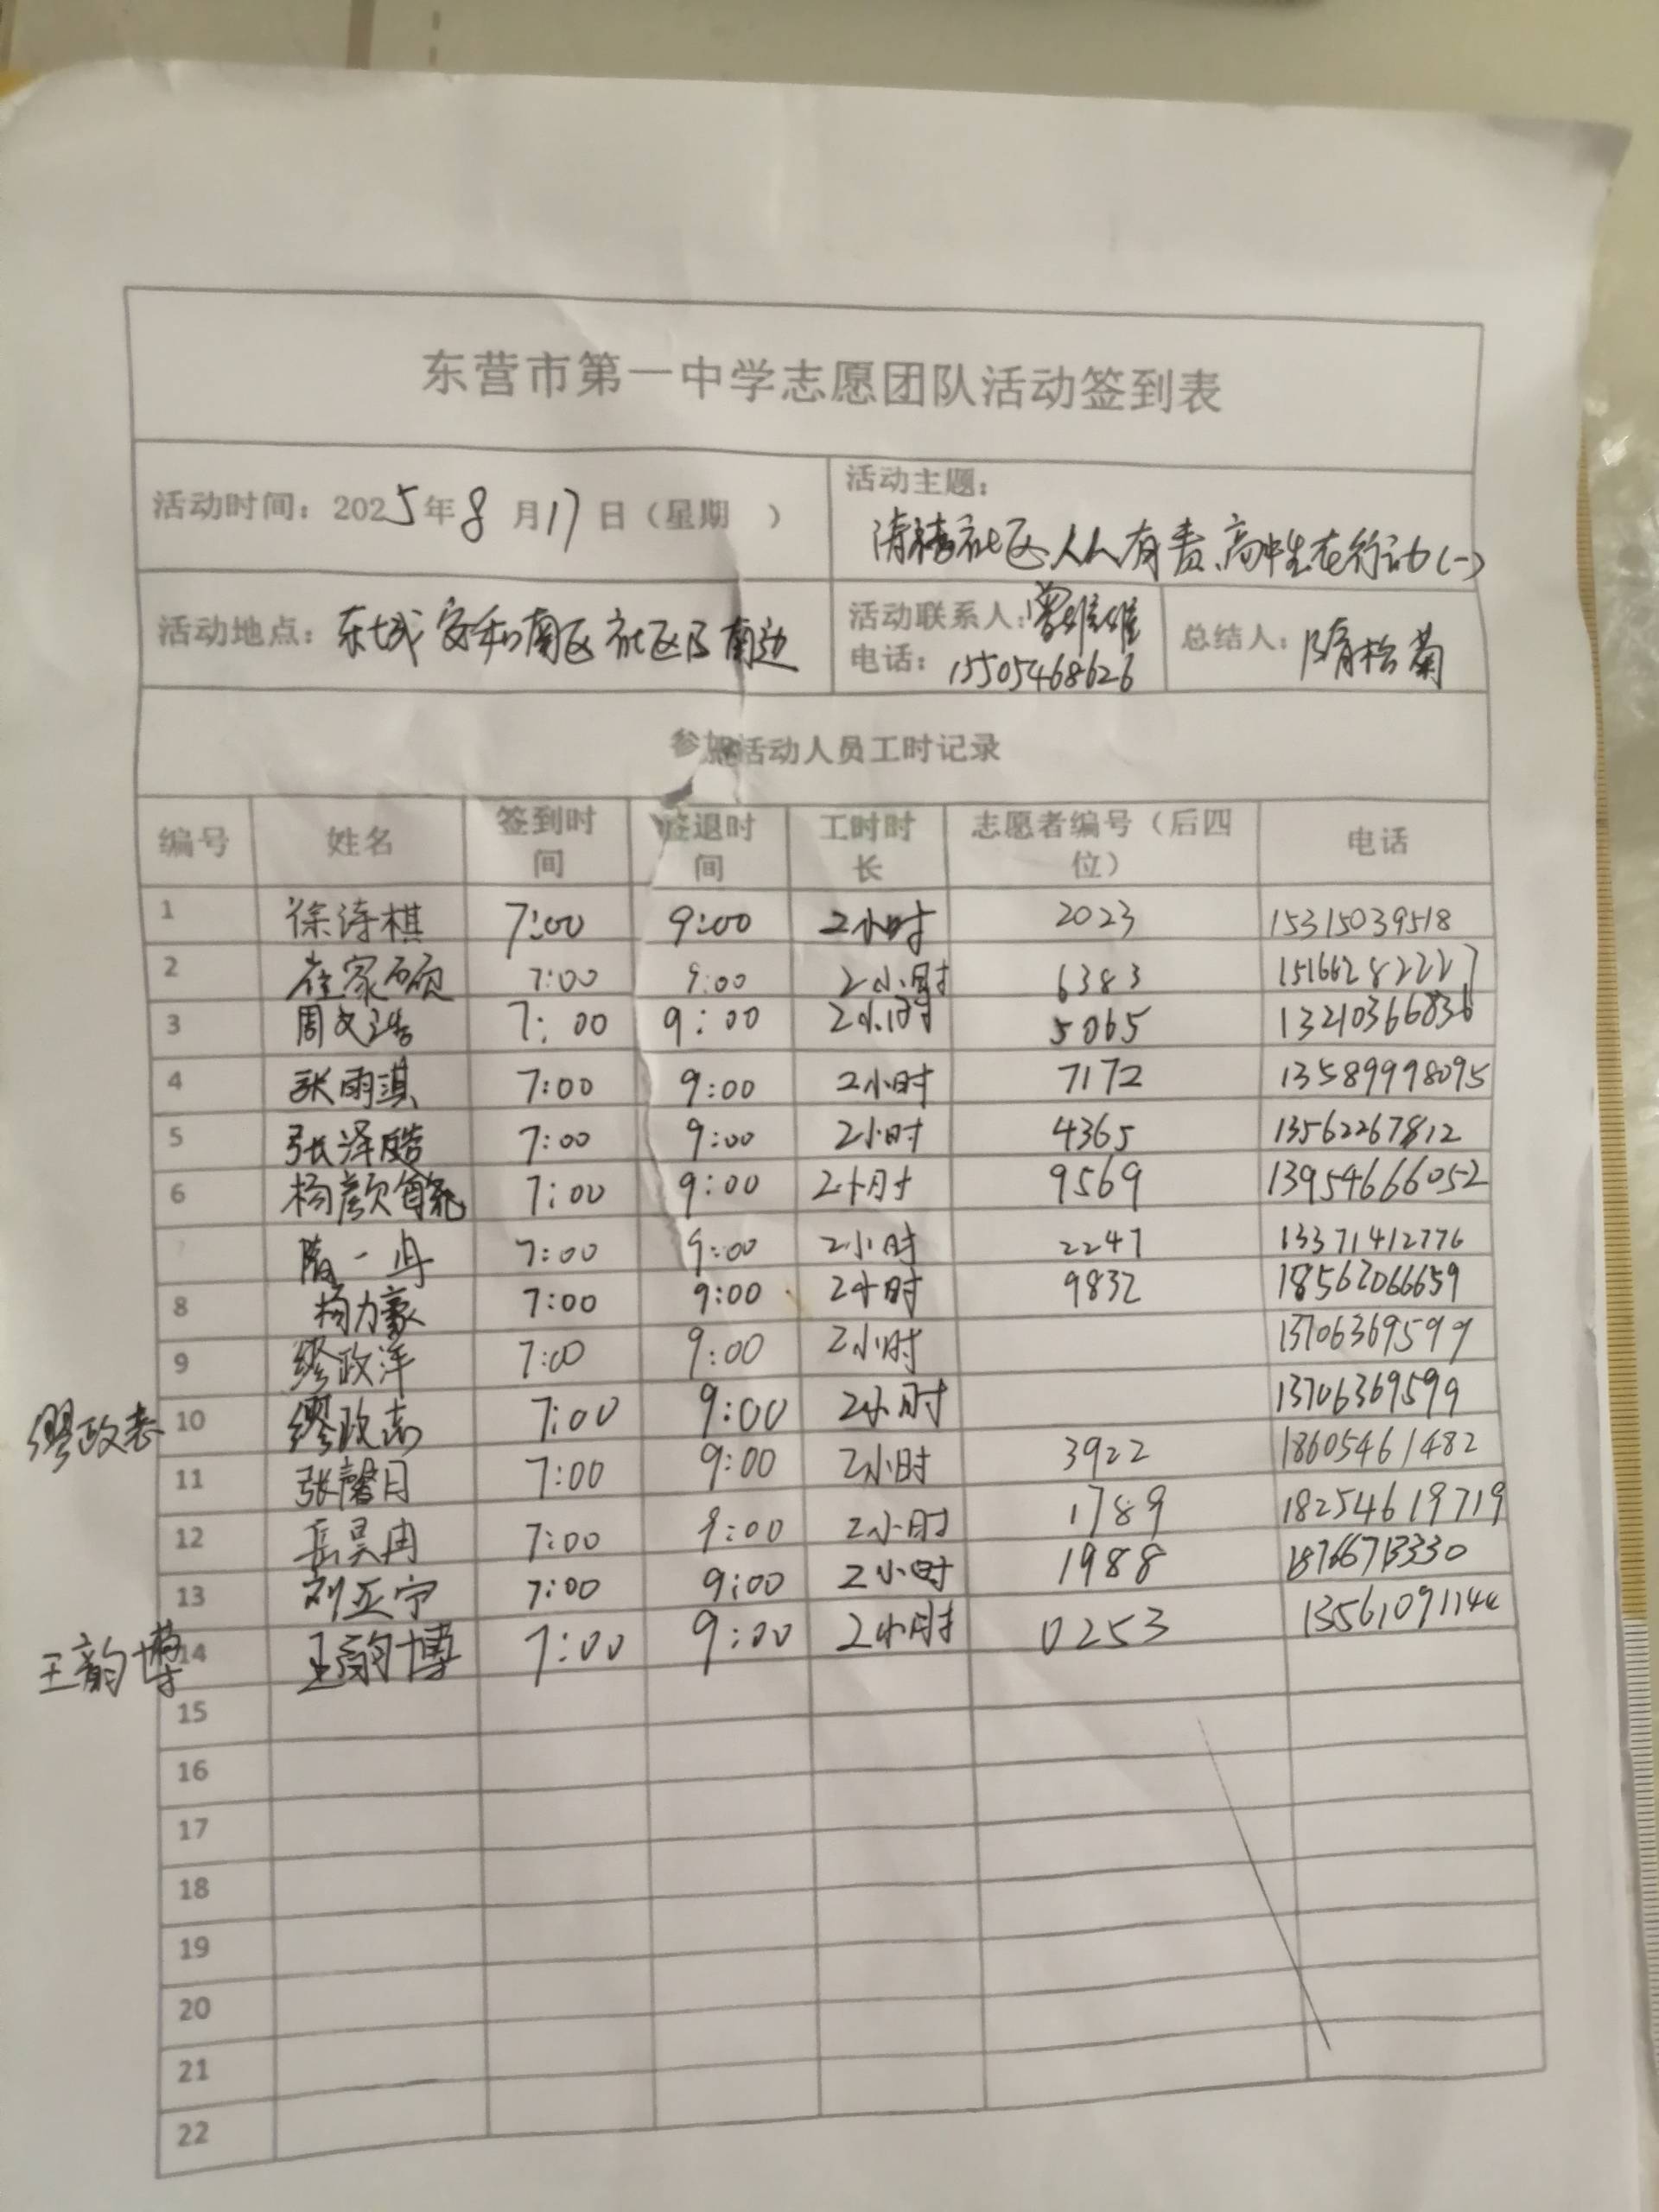 东营市第一中学志愿团队活动签到表
活动时间：2025年8月17日（星期　）
活动主题：
清楼社区、人人有责、高中生在行动(一)
活动地点：东城安和南区社区及南边
活动联系人：曾维维
电话：15505468626
总结人：隋松菊
参加活动人员工时记录
编号 姓名 签到时间 签退时间 工时时长 志愿者编号（后四位） 电话
1 徐诗棋 7:00 9:00 2小时 2023 15315039518
2 崔家硕 7:00 9:00 2小时 6383 15166282227
3 周文浩 7:00 9:00 2小时 5065 13210366836
4 张雨淇 7:00 9:00 2小时 7172 13589998095
5 张泽皓 7:00 9:00 2小时 4365 13562267812
6 杨颜 7:00 9:00 2小时 9569 13954666052
隋一丹 7:00 9:00 2小时 2247 13371412776
8 杨力豪 7:00 9:00 2小时 9832 18562066659
9 缪政洋 7:00 9:00 2小时 13706369599
缪政志 10 缪政志 7:00 9:00 2小时 13706369599
11 张馨月 7:00 9:00 2小时 3922 18605461482
12 岳昊冉 7:00 9:00 2小时 1789 18254619719
13 刘正宁 7:00 9:00 2小时 1988 18766713330
王韵博 14 王韵博 7:00 9:00 2小时 0253 13561091144
15
16
17
18
19
20
21
22